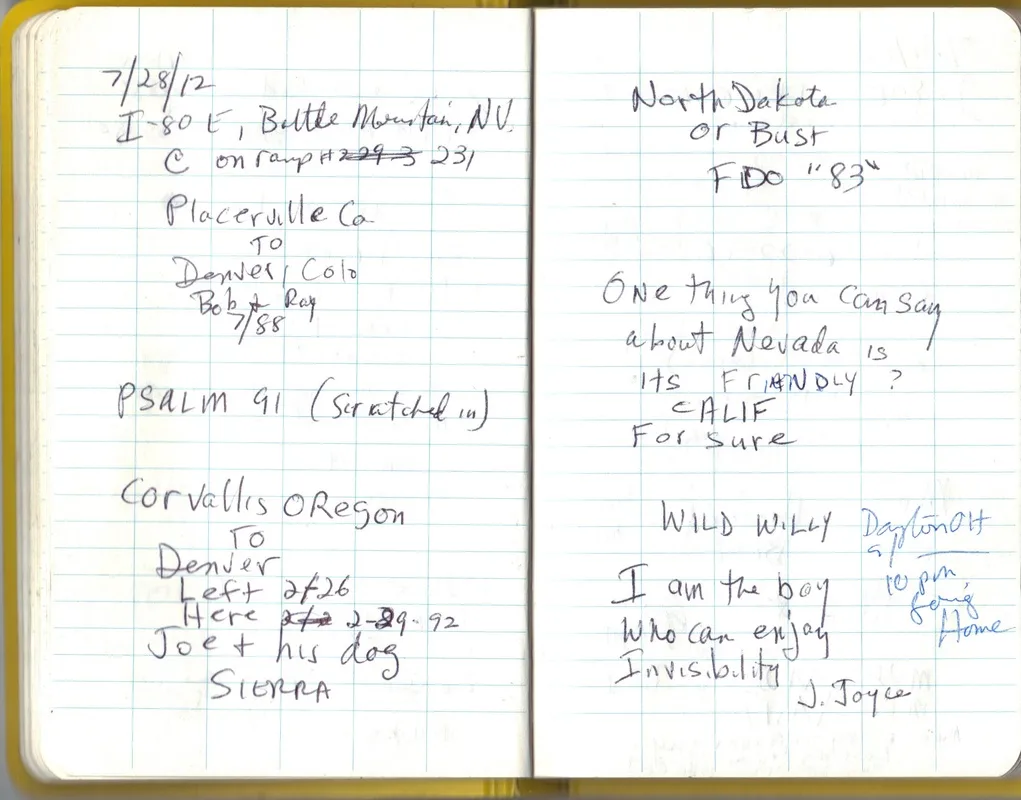 7/28/12
I-80 E, Battle Mountain, NV.
@ on ramp # 229 3 231
Placerville Ca
TO
Denver, Colo
Bob + Ray
7/88
PSALM 91 (Scratched in)
Corvallis ORegon
TO
Denver
Left 2/26
Here 2-29-92
Joe + his dog
SIERRA
North Dakota
or Bust
FDO "83"
ONe thing you can say
about Nevada is
its FRIANDLY ?
CALIF
For sure
WILD WILLY
Dayton OH
10 pm,
going
Home
I am the boy
Who can enjoy
Invisibility
J. Joyce